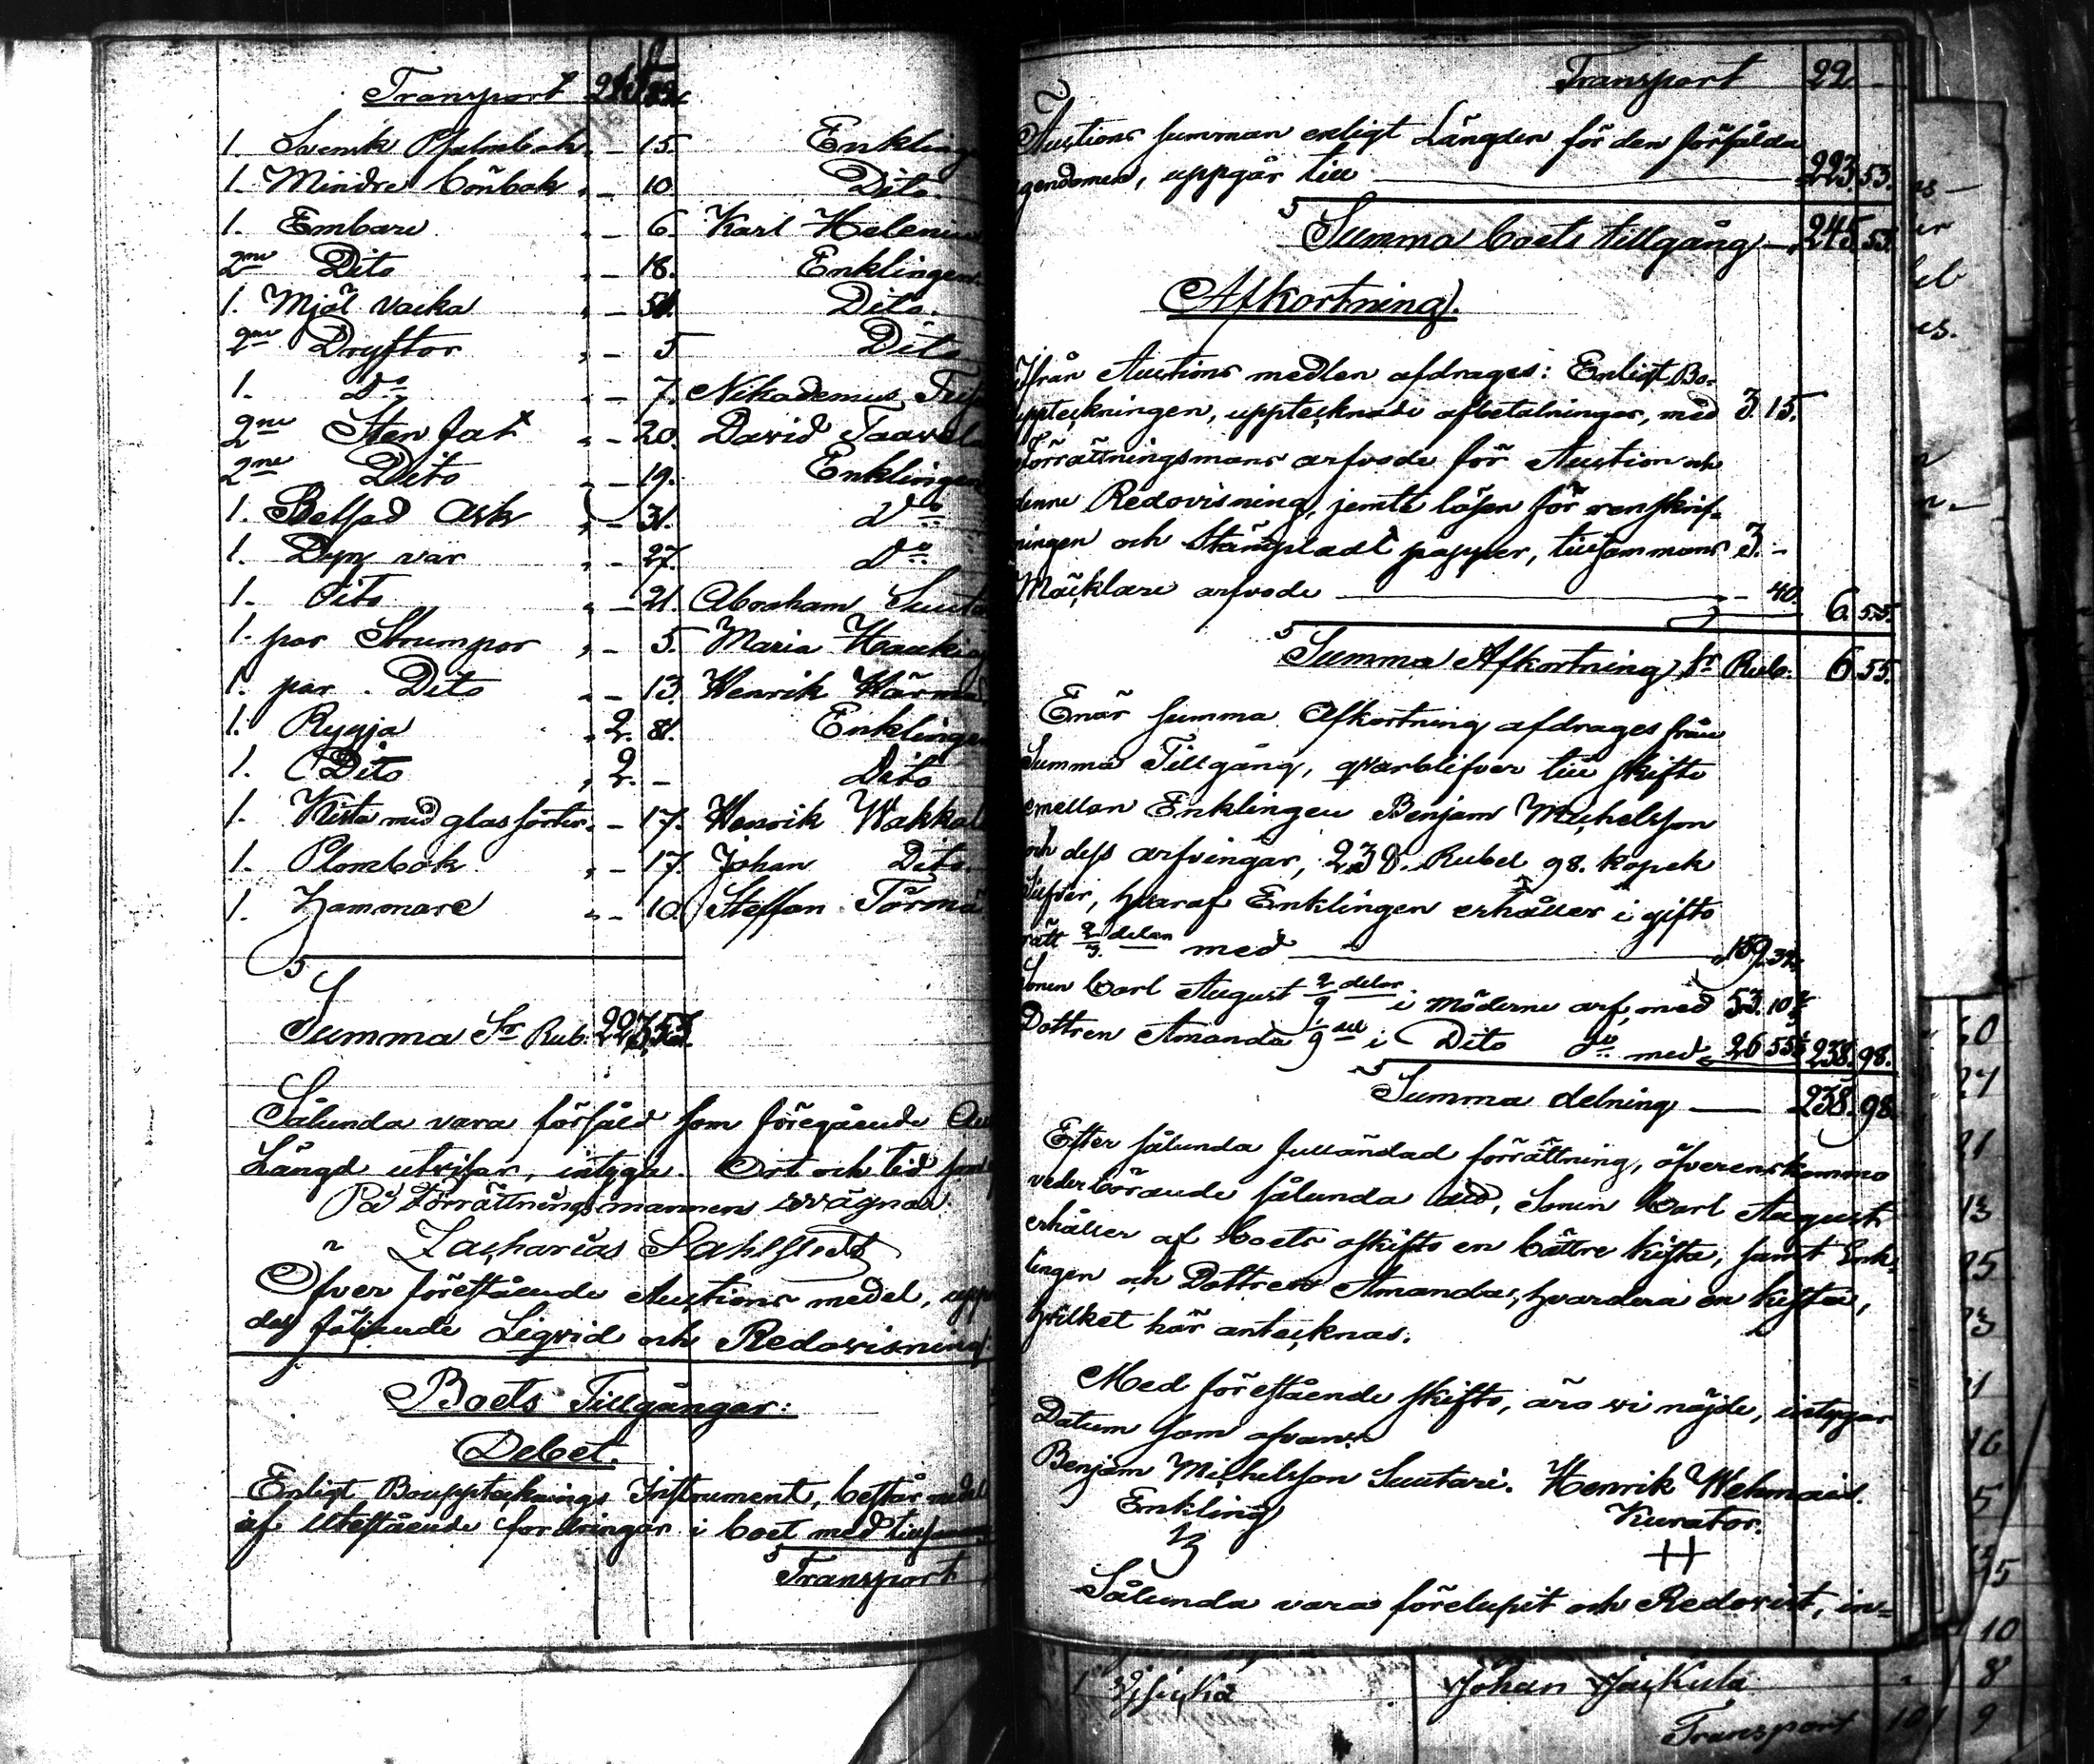 Transport
1. Svensk Psalmbok " — 15. Enkling
1. Mindre bönbok " — 10. Dito
1. Embare " — 6. Karl Helenius
2ne Dito " — 18. Enklingen
1. Mjöl vacka " — Dito.
2ne Dryftor " — 5 Dito
1. Do " — 7. Nikademus
2ne Sten fat " — 20. David Taavola
2ne Dito " — 19. Enklingen
1. Ask " — 31. Do
1. var " — 27. Do
1. Dito " — 21. Abraham
1. par Strumpor " — 5. Maria
1. par. Dito " — 13. Henrik
1. Ryyja " 2. 81. Enklingen
1. Dito " 2. — Dito
1. Kista med glas " — 17. Henrik
1. Plombok " — 17. Johan Dito.
1. Hammare " — 10. Steffan Törmä
Summa Sr Rub. 223,53.
Sålunda vara försåld som föregående
Längd utvisar, intyga. Ort och tid som
På Förrättningsmannens vägnar
Zacharias Sahlstedt
Öfver förestående Auctions medel,
des följande Liqvid och Redovisning:
Boets Tillgångar:
Debet.
Enligt Bouppteknings Instrument, består
af utestående fordringar i boet med
Transport
Transport 22. —
Auctions summan enligt Längden för den försålda
egendomen, uppgår till — 223.53.
Summa boets tillgång — 245.53
Afkortning.
Ifrån Auctions medlen afdrages: Enligt Bo-
uppteckningen, upptecknade afbetalningar, med 3. 15.
Förrättningsmans arfvode för Auction och
denne Redovisning, jemte lösen för renskrif-
ningen och Stämpladt papper, tillsammans 3. —
Mäcklare arfvode — " — 40. 6.55.
Summa Afkortning Sr Rub. 6.55.
Enär summa Afkortning afdrages från
Summa Tillgång, qvarblifver till skifte
emellan Enklingen Benjam Michelsson
och dess arfvingar, 238. Rubel 98. kopek
silfver, hvaraf Enklingen erhåller i gifto
rätt 2/3 delar med — 159.32
Sonen Carl August 2/9 delar i Möderne arf, med 53.10 2/3
Dottren Amanda 1/9 del i Dito do med 26 55 1/3 238. 98.
Summa delning — 238. 98.
Efter sålunda fulländad förrättning, öfverenskommo
vederbörande sålunda att, Sonen Carl August
erhåller af boets oskifto en bättre kista, samt Enk-
lingen och Dottren Amanda, hvardera en kista,
hvilket här antecknas.
Med förestående skifte, äro vi nöjde, intygar
Datum som ofvan.
Benjam Michelsson Suutari. Henrik Wehmais.
Enkling Kurator.
Sålunda vara förelupit och Redovist, in-
1 Johan Jaykula " 8
Transport 9